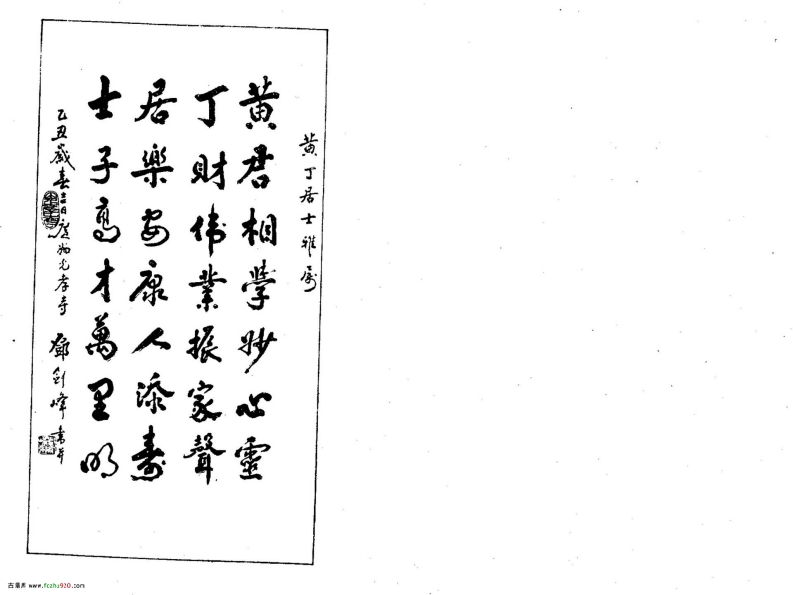 黄丁居士雅屬
黄君相學妙心靈
丁財偉業振家聲
居樂安康人添壽
士子高才萬里明
乙丑歲春吉日於廣州光孝寺 鄧劍峰書
古籍网 www.fczhu920.com